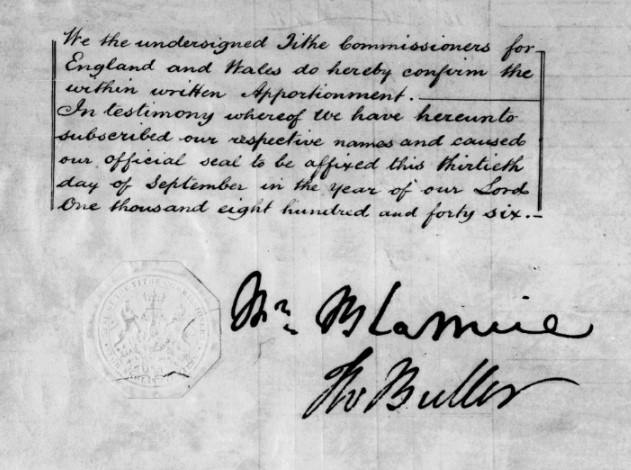 We the undersigned Tithe Commissioners for
England and Wales do hereby confirm the
within written Apportionment.
In testimony whereof we have hereunto
subscribed our respective names and caused
our official seal to be affixed this thirtieth
day of September in the year of our Lord
One thousand eight hundred and forty six.
Wm Blamire
Tho Buller